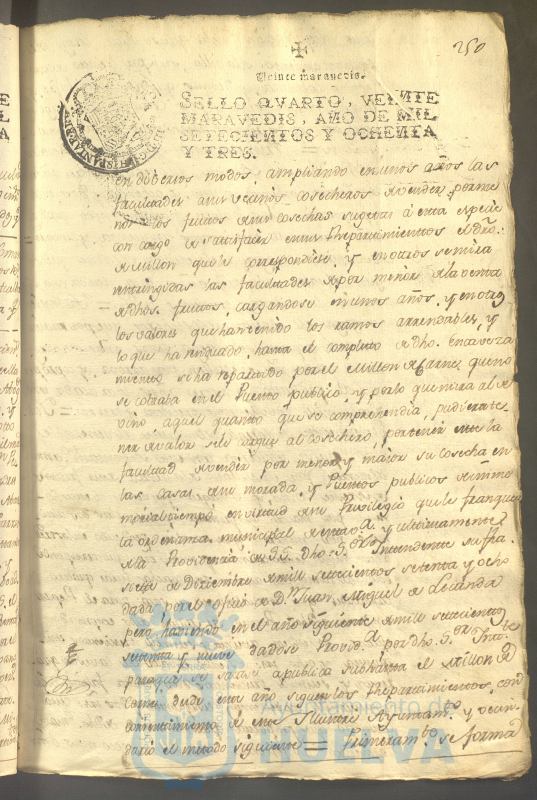 250
Veinte maravedis.
SELLO QVARTO, VEINTE
MARAVEDIS, AÑO DE MIL
SETECIENTOS Y OCHENTA
Y TRES.
modos, ampliando en unos años las
facultades a sus vecinos cosecheros de vender por me
nor los frutos de sus cosechas sugetas á esta especie
con cargo de satisfacer en sus Repartimientos el dro.
de Millon que le correspondiese, y en otros se mira
restringidas las facultades de por menor de la venta
de dhos. frutos, cargandose en unos años, y en otros
los valores que han tenido los ramos arrendables, y
lo que ha restado, hasta el completo de dho. encaveza
miento se ha repartido por el Millon de Carnes que no
se cobrava en el Puesto publico, y por lo que mira al de
vino aquel quanto que se comprehendia, pudiera te
ner de valor se le cargue al cosechero, por tener este la
facultad de vender por menor y maior su cosecha en
las casas de su morada, y Puestos publicos de imme
morial tiempo en virtud de su Privilegio que le franquea
la ordenanza municipal y ultimamente
de la Providencia dho. S.or Intendente su fha.
seis de Diciembre de mil setecientos setenta y ocho
dada por el oficio de D.n Juan Miguel de
pero, haviendo en el año siguiente de mil setecientos
setenta y nueve dadose Provid.a por dho. S.or Inte.te
para que se sacase a publica subhasta el Millon de
Carne, dude este año siguen los Repartimientos, con
consentimiento de este Illustre Ayuntam.to y vecin
dario el metodo siguiente = Primeram.te se forma
Ayuntamiento de
HUELVA